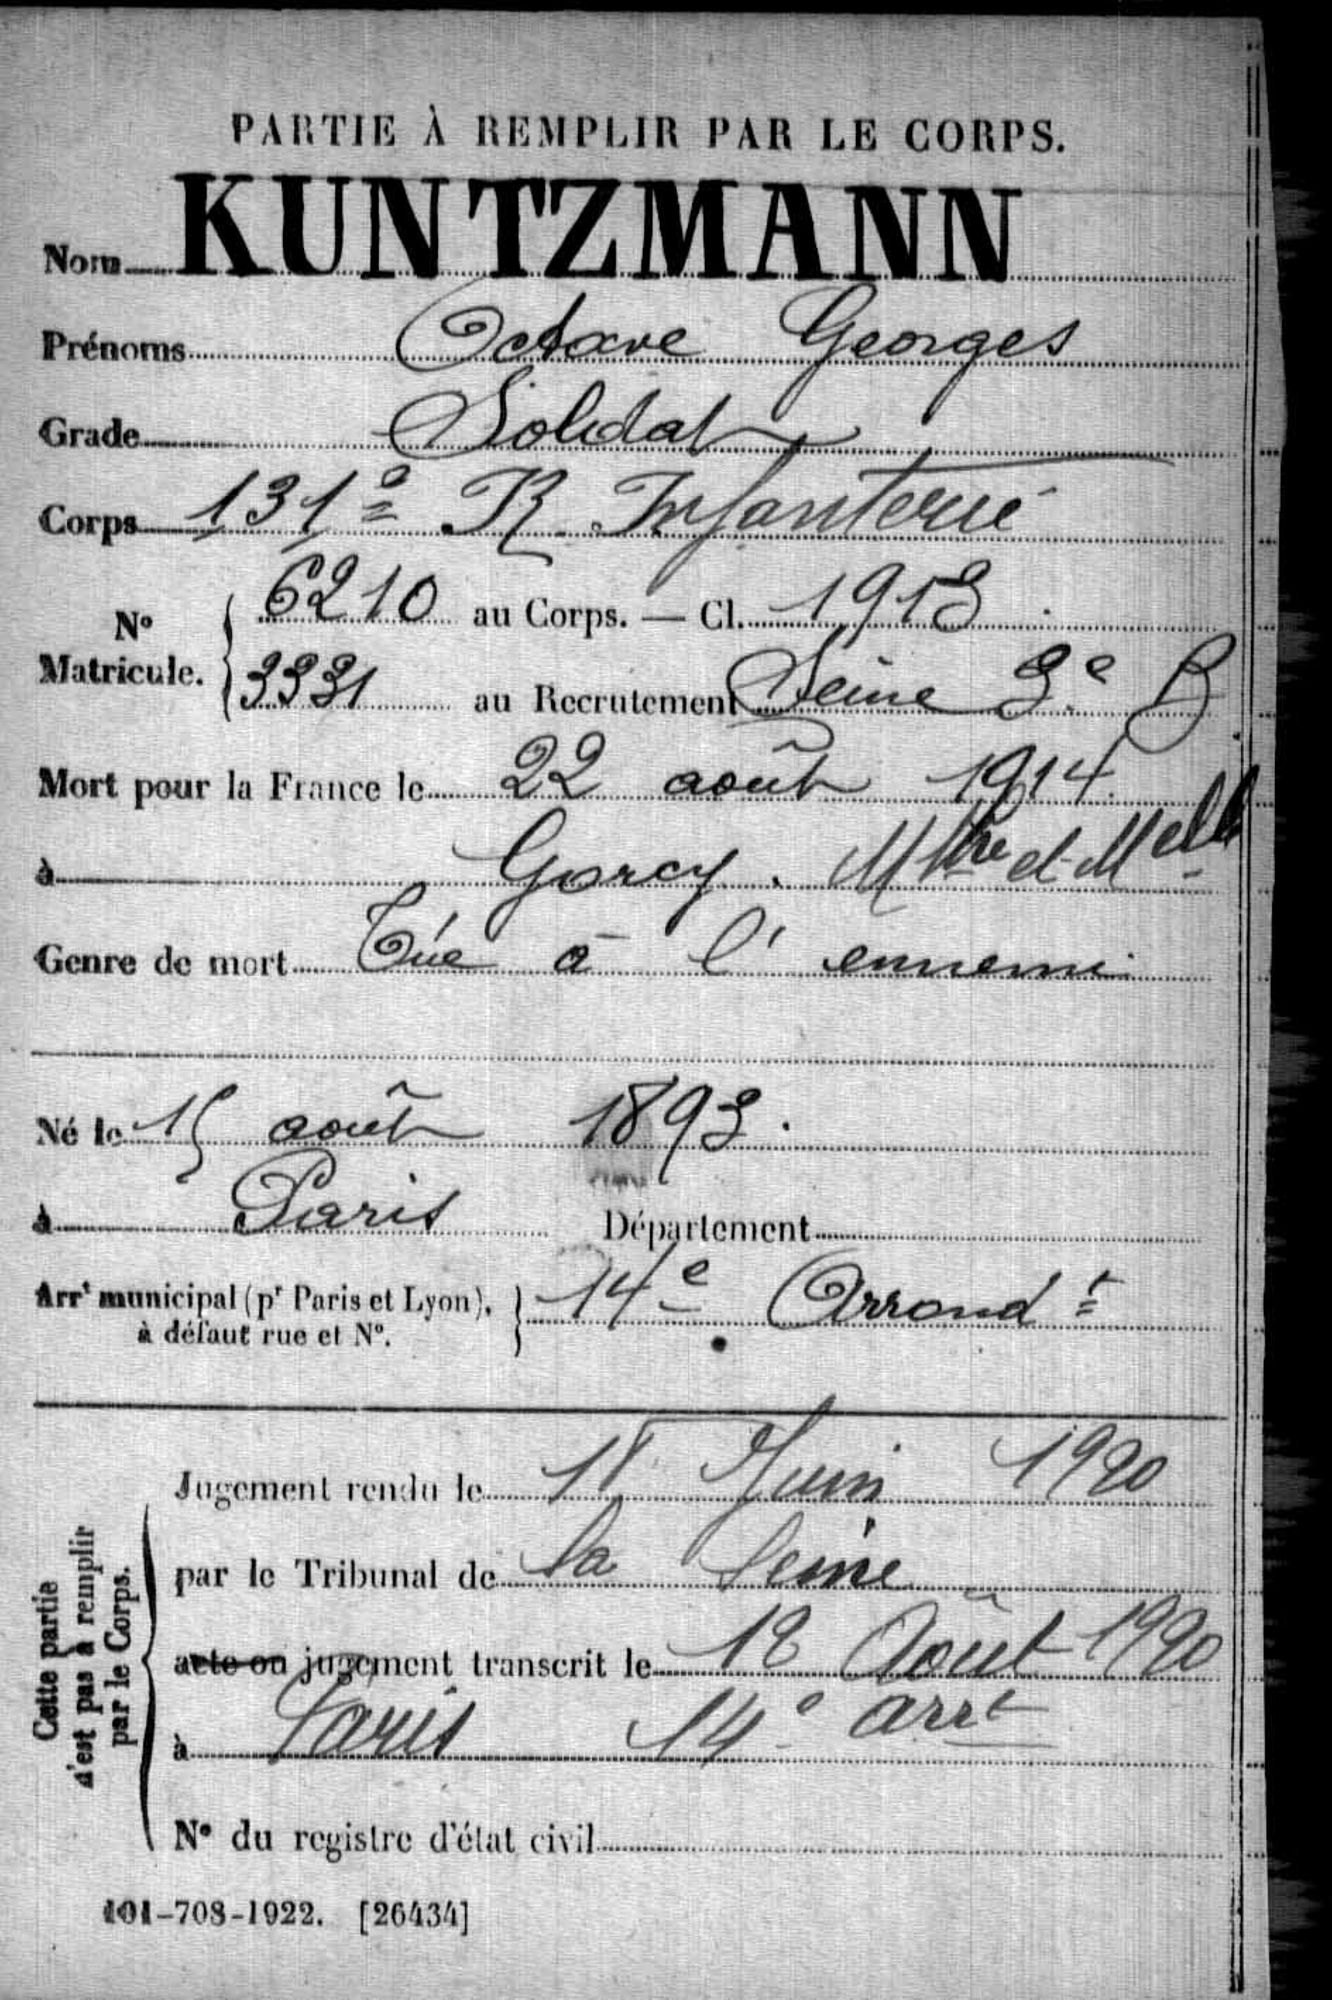 PARTIE À REMPLIR PAR LE CORPS.
Nom KUNTZMANN
Prénoms Octave Georges
Grade Soldat
Corps 131e R. Infanterie
No Matricule. { 6210 au Corps. — Cl. 1913
3331 au Recrutement Seine 3e B
Mort pour la France le 22 août 1914
à Gorcy. Mthe et Melle
Genre de mort Tué à l'ennemi
Né le 15 août 1893.
à Paris Département
Arrt municipal (pr Paris et Lyon), } 14e Arrondt
à défaut rue et No.
Cette partie n'est pas à remplir par le Corps.
Jugement rendu le 18 Juin 1920
par le Tribunal de la Seine
acte ou jugement transcrit le 18 Août 1920
à Paris 14e arrt
No du registre d'état civil
101-708-1922. [26434]